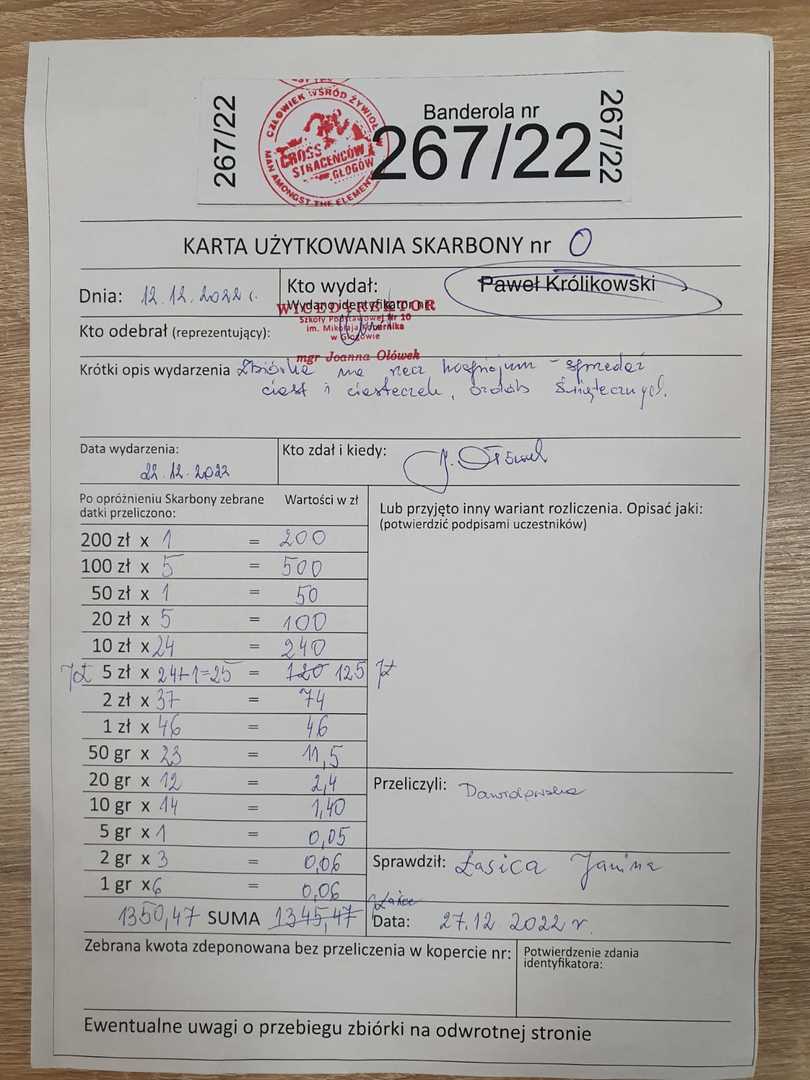 267/22
CZŁOWIEK WŚRÓD ŻYWIOŁ
CROSS
STRACEŃCÓW
GŁOGÓW
MAN AMONGST THE ELEMENT
Banderola nr
267/22
267/22
KARTA UŻYTKOWANIA SKARBONY nr 0
Dnia: 12.12.2022 r.
Kto wydał: Paweł Królikowski
Wydano identyfikator nr
WICEDYREKTOR
Szkoły Podstawowej Nr 10
im. Mikołaja Kopernika
w Głogowie
mgr Joanna Ołówek
Kto odebrał (reprezentujący):
Krótki opis wydarzenia Zbiórka na rzecz hospicjum - sprzedaż
ciast i ciasteczek, ozdób świątecznych.
Data wydarzenia:
22.12.2022
Kto zdał i kiedy: J. Ołówek
Po opróżnieniu Skarbony zebrane
datki przeliczono:
Wartości w zł
Lub przyjęto inny wariant rozliczenia. Opisać jaki:
(potwierdzić podpisami uczestników)
200 zł x 1 = 200
100 zł x 5 = 500
50 zł x 1 = 50
20 zł x 5 = 100
10 zł x 24 = 240
5 zł x 24+1=25 = 120 125
2 zł x 37 = 74
1 zł x 46 = 46
50 gr x 23 = 11,5
20 gr x 12 = 2,4
10 gr x 14 = 1,40
5 gr x 1 = 0,05
2 gr x 3 = 0,06
1 gr x 6 = 0,06
1350,47 SUMA 1345,47
Przeliczyli: Dawidowska
Sprawdził: Łasica Janina
Data: 27.12 2022 r.
Zebrana kwota zdeponowana bez przeliczenia w kopercie nr:
Potwierdzenie zdania
identyfikatora:
Ewentualne uwagi o przebiegu zbiórki na odwrotnej stronie